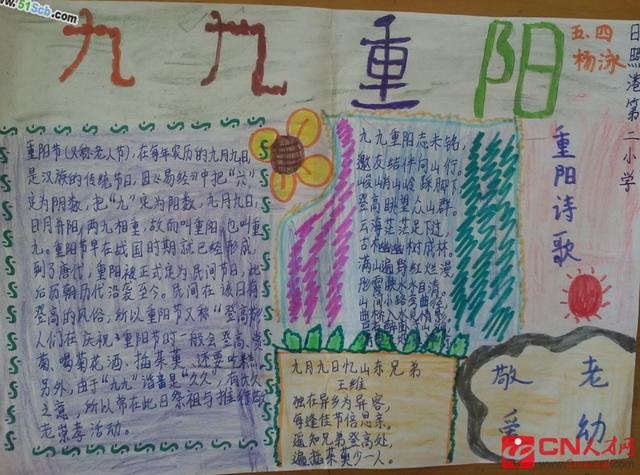 www.51Scb.com
九九重阳
五.四
杨泳
日照港第二小学
重阳节(又称老人节),在每年农历的九月九日,
是汉族的传统节日,因《易经》中把“六”
定为阴数,把“九”定为阳数,九月九日,
日月并阳,两九相重,故而叫重阳,也叫重
九。重阳节早在战国时期就已经形成,
到了唐代,重阳被正式定为民间节日,此
后历朝历代沿袭至今。民间在该日有
登高的风俗,所以重阳节又称“登高节
人们在庆祝重阳节的一般会登高、赏
菊、喝菊花酒、插茱萸
另外,由于“九九”谐音是“久久”,有长久
之意,所以常在此日祭祖与推行敬
老崇孝活动。
九九重阳志未铭,
邀友结伴向山行。
峻峭山岭踩脚下,
登高眺望众山群。
云海茫茫足下过,
古木幽幽树成林。
满山遍野红烂漫
重阳诗歌
九月九日忆山东兄弟
王维
独在异乡为异客,
每逢佳节倍思亲。
遥知兄弟登高处,
遍插茱萸少一人。
敬老
爱幼
CN人才网